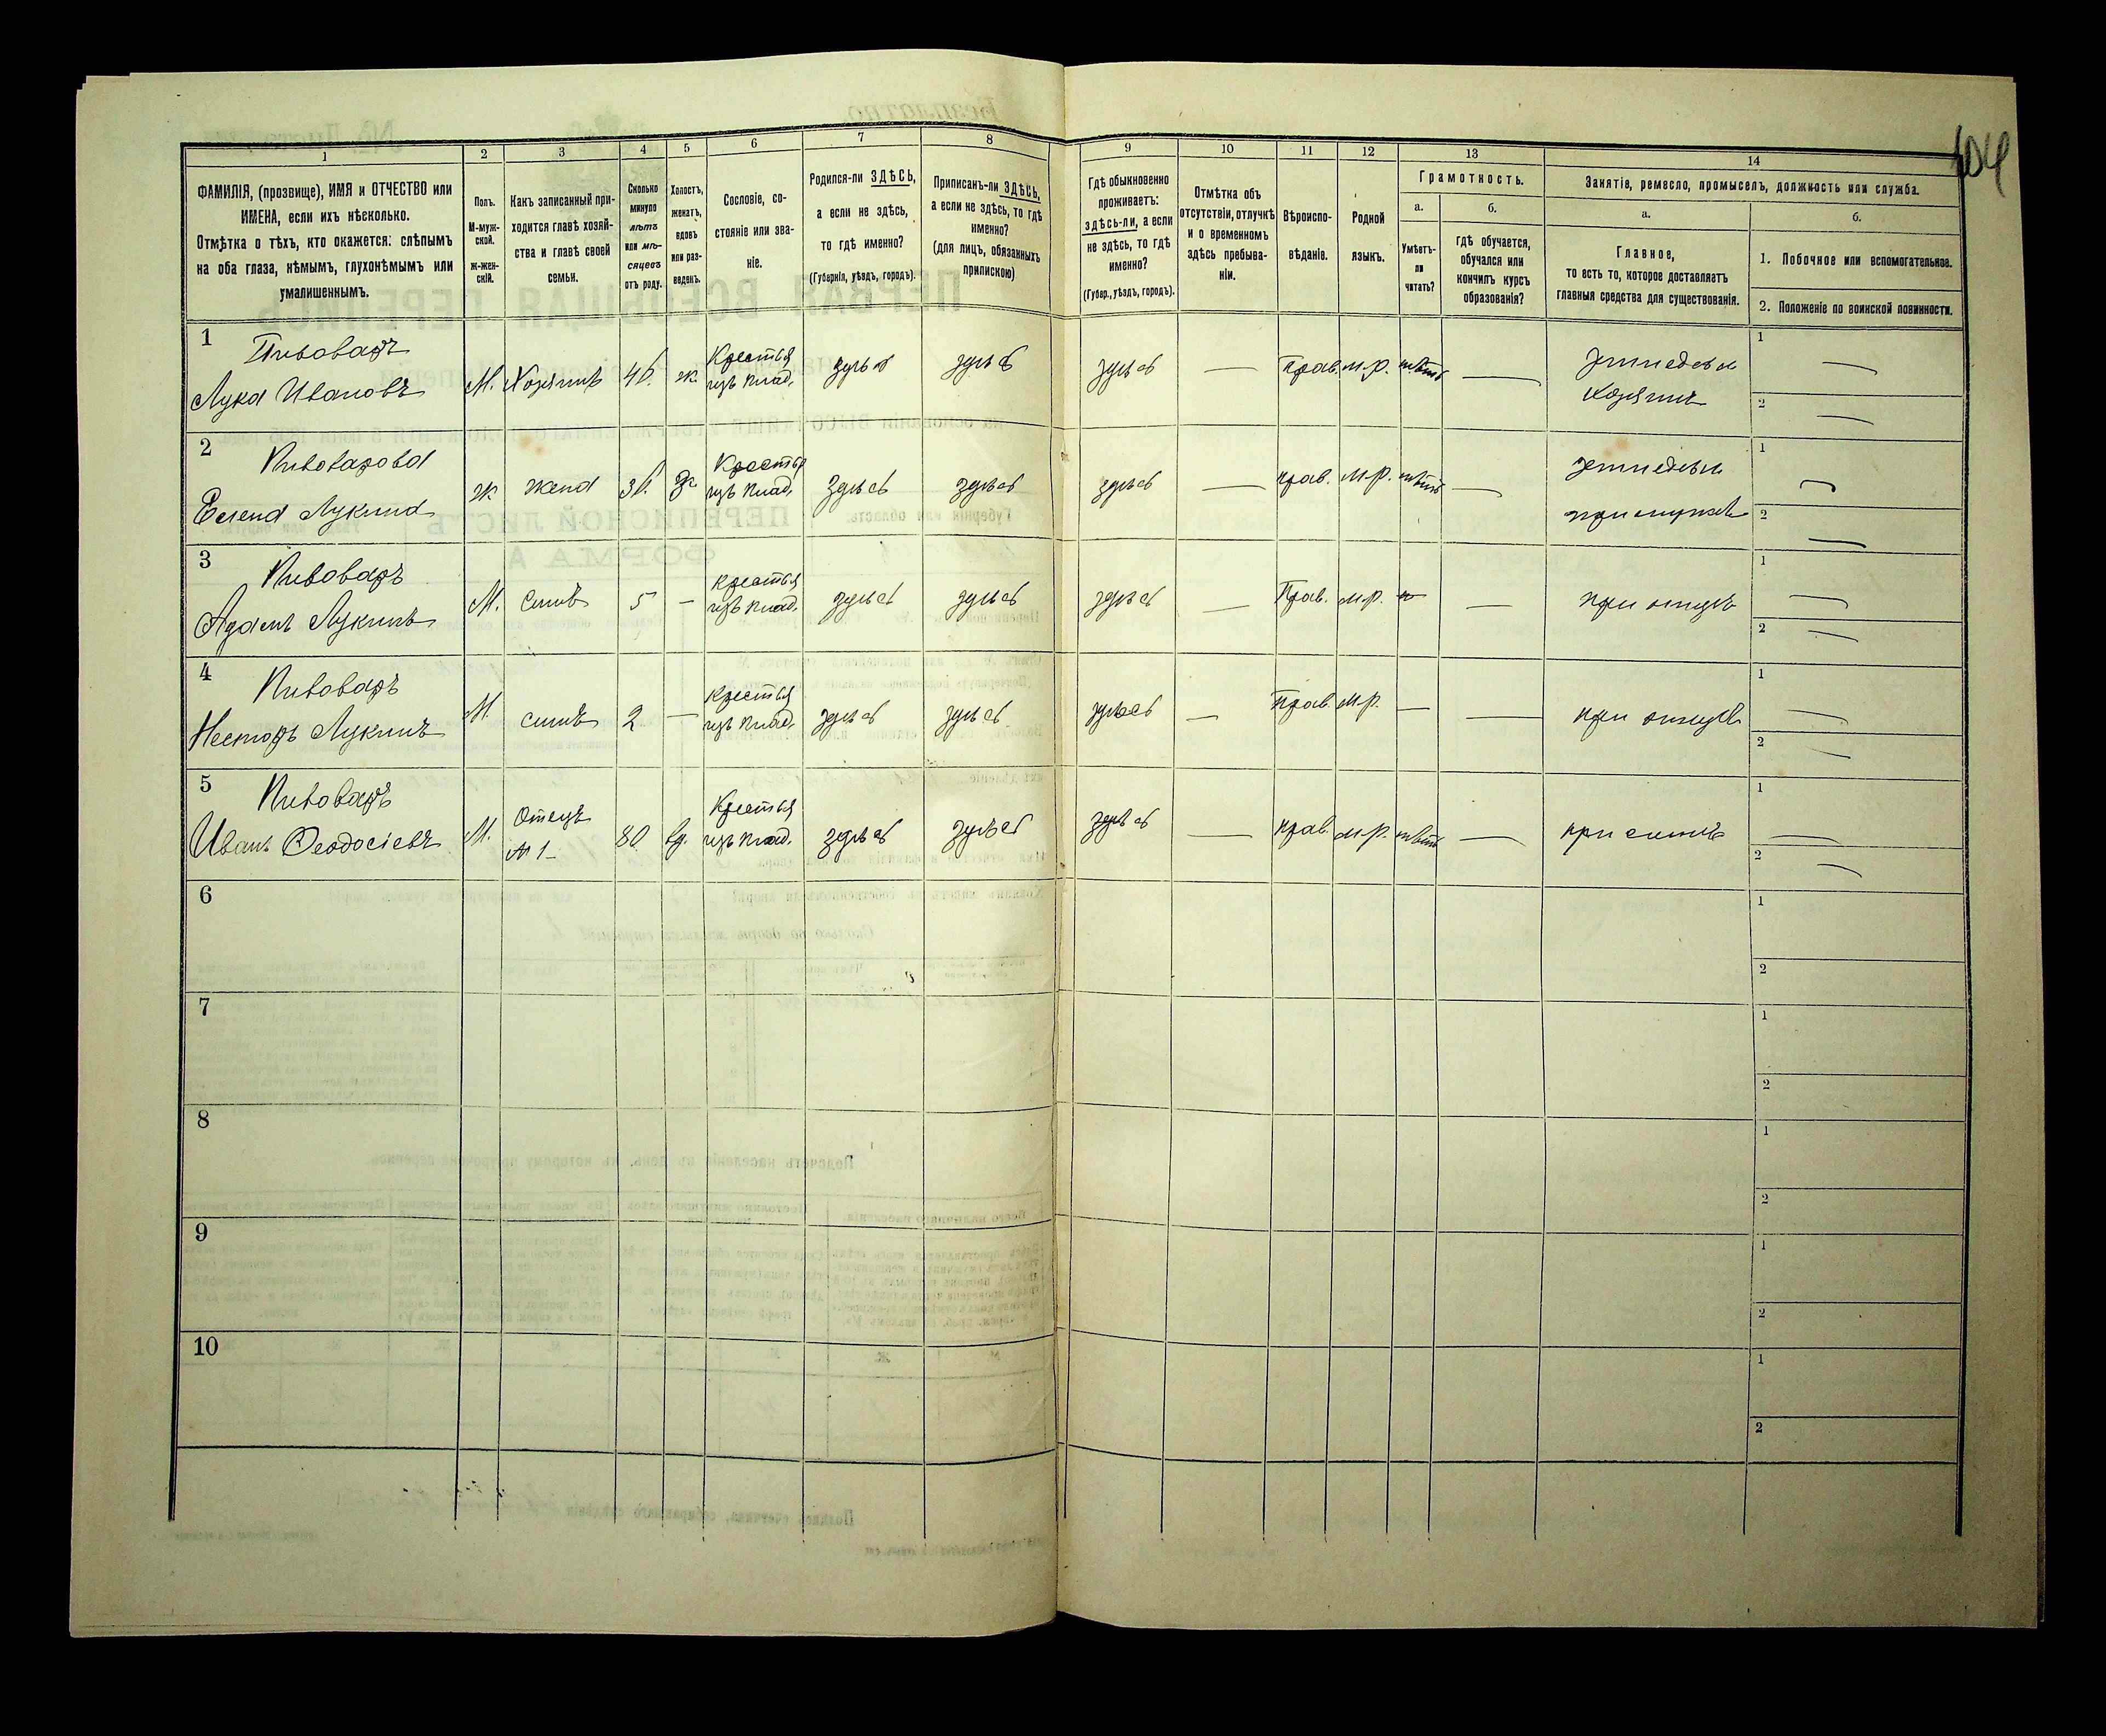 104
1
2
3
4
5
6
7
8
9
10
11
12
13
14
ФАМИЛІЯ, (прозвище), ИМЯ и ОТЧЕСТВО или
ИМЕНА, если ихъ нѣсколько.
Отмѣтка о тѣхъ, кто окажется: слѣпымъ
на оба глаза, нѣмымъ, глухонѣмымъ или
умалишеннымъ.
Полъ.
М-муж-
ской.
Ж-жен-
скій.
Какъ записанный при-
ходится главѣ хозяй-
ства и главѣ своей
семьи.
Сколько
минуло
лѣтъ
или мѣ-
сяцевъ
отъ роду.
Холостъ,
женатъ,
вдовъ
или раз-
веденъ.
Сословіе, со-
стояніе или зва-
ніе.
Родился-ли ЗДѢСЬ,
а если не здѣсь,
то гдѣ именно?
(Губернія, уѣздъ, городъ).
Приписанъ-ли ЗДѢСЬ,
а если не здѣсь, то гдѣ
именно?
(для лицъ, обязанныхъ
припискою)
Гдѣ обыкновенно
проживаетъ:
здѣсь-ли, а если
не здѣсь, то гдѣ
именно?
(Губер., уѣздъ, городъ).
Отмѣтка объ
отсутствіи, отлучкѣ
и о временномъ
здѣсь пребыва-
ніи.
Вѣроиспо-
вѣданіе.
Родной
языкъ.
Грамотность.
а.
Умѣетъ-
ли
читать?
б.
Гдѣ обучается,
обучался или
кончилъ курсъ
образованія?
Занятіе, ремесло, промыселъ, должность или служба.
а.
Главное,
то есть то, которое доставляетъ
главныя средства для существованія.
б.
1. Побочное или вспомогательное.
2. Положеніе по воинской повинности.
1
Пивоваръ
Лука Ивановъ
М.
Хозяинъ
ж.
Крестья
изъ влад.
здѣсь
здѣсь
здѣсь
—
Прав.
м.р.
нѣтъ
—
земледѣл
хозяинъ
1 —
2 —
2
Пивоварова
Лукина
ж
жена
Ж
Крестья
изъ влад.
здѣсь
здѣсь
здѣсь
—
прав.
м.р.
нѣтъ
—
земледѣл
при мужѣ
1 —
2 —
3
Пивоваръ
Адамъ Лукинъ
М.
Сынъ
5
—
крестья
изъ влад.
здѣсь
здѣсь
здѣсь
—
Прав.
м.р.
—
при отцѣ
1 —
2 —
4
Пивоваръ
Несторъ Лукинъ
М.
сынъ
2
—
Крестья
изъ влад.
здѣсь
здѣсь
здѣсь
—
Прав.
м.р.
—
—
при отцѣ
1 —
2 —
5
Пивоваръ
Иванъ Ѳеодосіевъ
М.
Отецъ
№ 1
80
вд.
Крестья
изъ влад.
здѣсь
здѣсь
здѣсь
—
прав.
м.р.
нѣтъ
—
при сынѣ
1 —
2 —
6
1
2
7
1
2
8
1
2
9
1
2
10
1
2